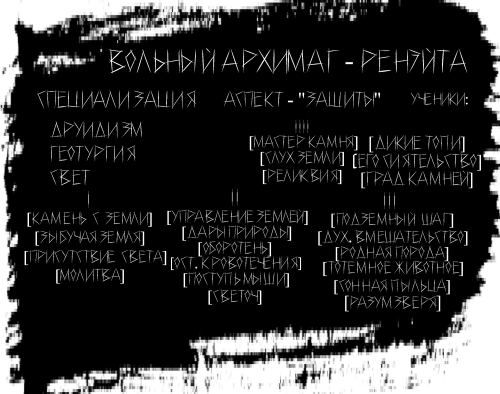 ВОЛЬНЫЙ АРХИМАГ - РЕНЭЙТА
СПЕЦИАЛИЗАЦИЯ АСПЕКТ - "ЗАЩИТЫ" УЧЕНИКИ:
ДРУИДИЗМ
ГЕОТУРГИЯ
СВЕТ
IIII
[МАСТЕР КАМНЯ] [ДИКИЕ ТОПИ]
[СЛУХ ЗЕМЛИ] [ЕГО СИЯТЕЛЬСТВО]
[РЕЛИКВИЯ] [ГРАД КАМНЕЙ]
I
[КАМЕНЬ С ЗЕМЛИ]
[ЗЫБУЧАЯ ЗЕМЛЯ]
[ПРИСУТСТВИЕ СВЕТА]
[МОЛИТВА]
II
[УПРАВЛЕНИЕ ЗЕМЛЕЙ]
[ДАРЫ ПРИРОДЫ]
[ОБОРОТЕНЬ]
[ОСТ. КРОВОТЕЧЕНИЯ]
[ПОСТУПЬ МЫШИ]
[СВЕТОЧ]
III
[ПОДЗЕМНЫЙ ШАГ]
[ДУХ. ВМЕШАТЕЛЬСТВО]
[РОДНАЯ ПОРОДА]
[ТОТЕМНОЕ ЖИВОТНОЕ]
[СОННАЯ ПЫЛЬЦА]
[РАЗУМ ЗВЕРЯ]